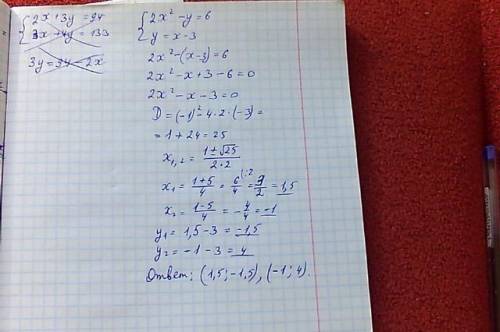 {2x + 3y = 94
3x + 4y = 133
3y = 94 - 2x
{2x² - y = 6
y = x - 3
2x² - (x - 3) = 6
2x² - x + 3 - 6 = 0
2x² - x - 3 = 0
D = (-1)² - 4·2·(-3) =
= 1 + 24 = 25
x₁,₂ = (1 ± √25)/(2·2)
x₁ = (1+5)/4 = 6/4 (:2 = 3/2 = 1,5
x₂ = (1-5)/4 = -4/4 = -1
y₁ = 1,5 - 3 = -1,5
y₂ = -1 - 3 = 4
Ответ: (1,5; -1,5), (-1; 4).